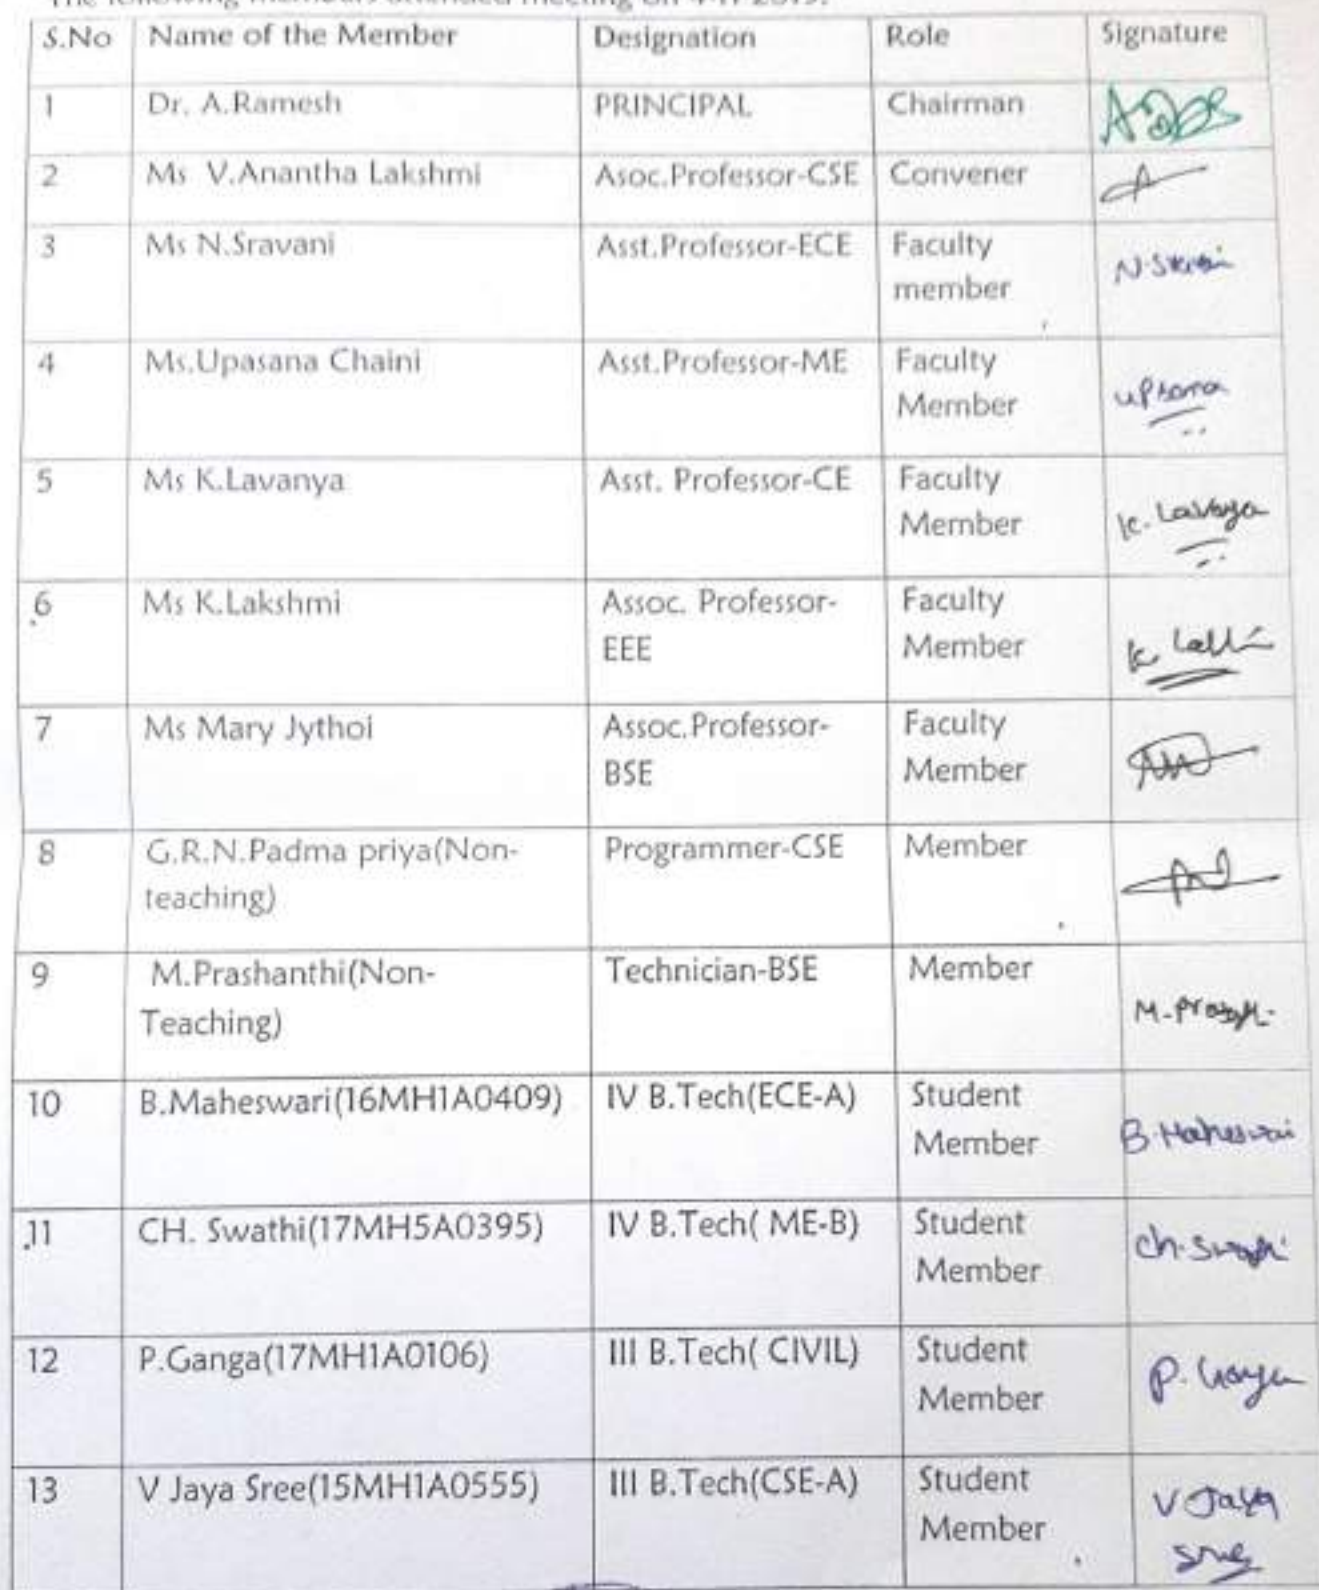 The following members attended meeting on 4-11-2019.
S.No Name of the Member Designation Role Signature
1 Dr. A.Ramesh PRINCIPAL Chairman
2 Ms V.Anantha Lakshmi Asoc.Professor-CSE Convener
3 Ms N.Sravani Asst.Professor-ECE Faculty
member
N.Sravani
4 Ms.Upasana Chaini Asst.Professor-ME Faculty
Member
upsana
5 Ms K.Lavanya Asst. Professor-CE Faculty
Member
K. Lavanya
6 Ms K.Lakshmi Assoc. Professor- Faculty
EEE Member
7 Ms Mary Jythoi Assoc.Professor- Faculty
BSE Member
8 G.R.N.Padma priya(Non- Programmer-CSE Member
teaching)
9 M.Prashanthi(Non- Technician-BSE Member
Teaching)
10 B.Maheswari(16MH1A0409) IV B.Tech(ECE-A) Student
Member
B.Maheswari
11 CH. Swathi(17MH5A0395) IV B.Tech( ME-B) Student
Member
Ch.Swathi
12 P.Ganga(17MH1A0106) III B.Tech( CIVIL) Student
Member
P. Ganga
13 V Jaya Sree(15MH1A0555) III B.Tech(CSE-A) Student
Member
V Jaya
Sree